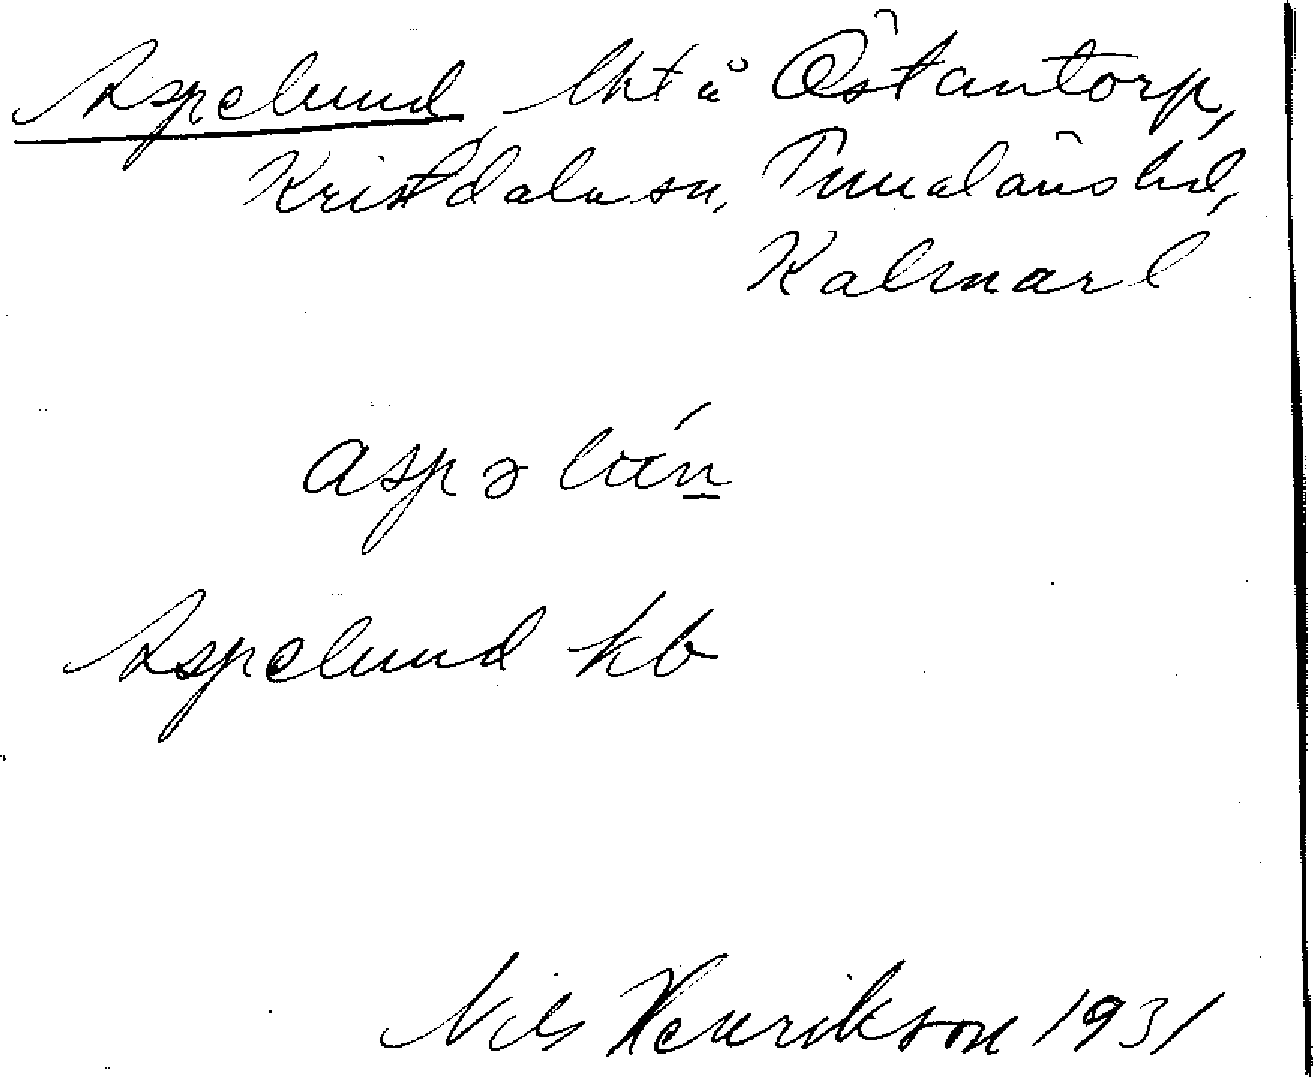 Aspelund, lht å Östantorp,
Kristdala sn, Tunaläns hd,
Kalmar l
aspə lún
Aspelund kb
Nils Henrikson 1931